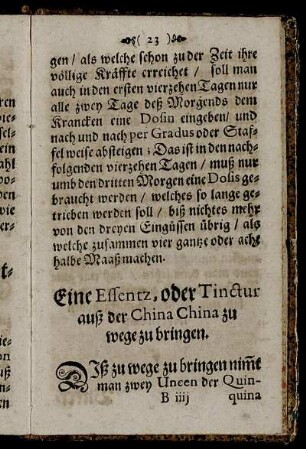 ( 23 )
gen / als welche schon zu der Zeit ihre
völlige Kräffte erreichet / soll man
auch in den ersten vierzehen Tagen nur
alle zwey Tage deß Morgends dem
Krancken eine Dosin eingeben / und
nach und nach per Gradus oder Staf-
fel weise absteigen ; Das ist in den nach-
folgenden vierzehen Tagen / muß nur
umb den dritten Morgen eine Dosis ge-
braucht werden / welches so lange ge-
trieben werden soll / biß nichtes mehr
von den dreyen Eingüssen übrig / als
welche zusammen vier gantze oder acht
halbe Maaß machen.
Eine Essentz, oder Tinctur
auß der China China zu
wege zu bringen.
Diß zu wege zu bringen nim̃t
man zwey Uncen der Quin-
B iiij quina